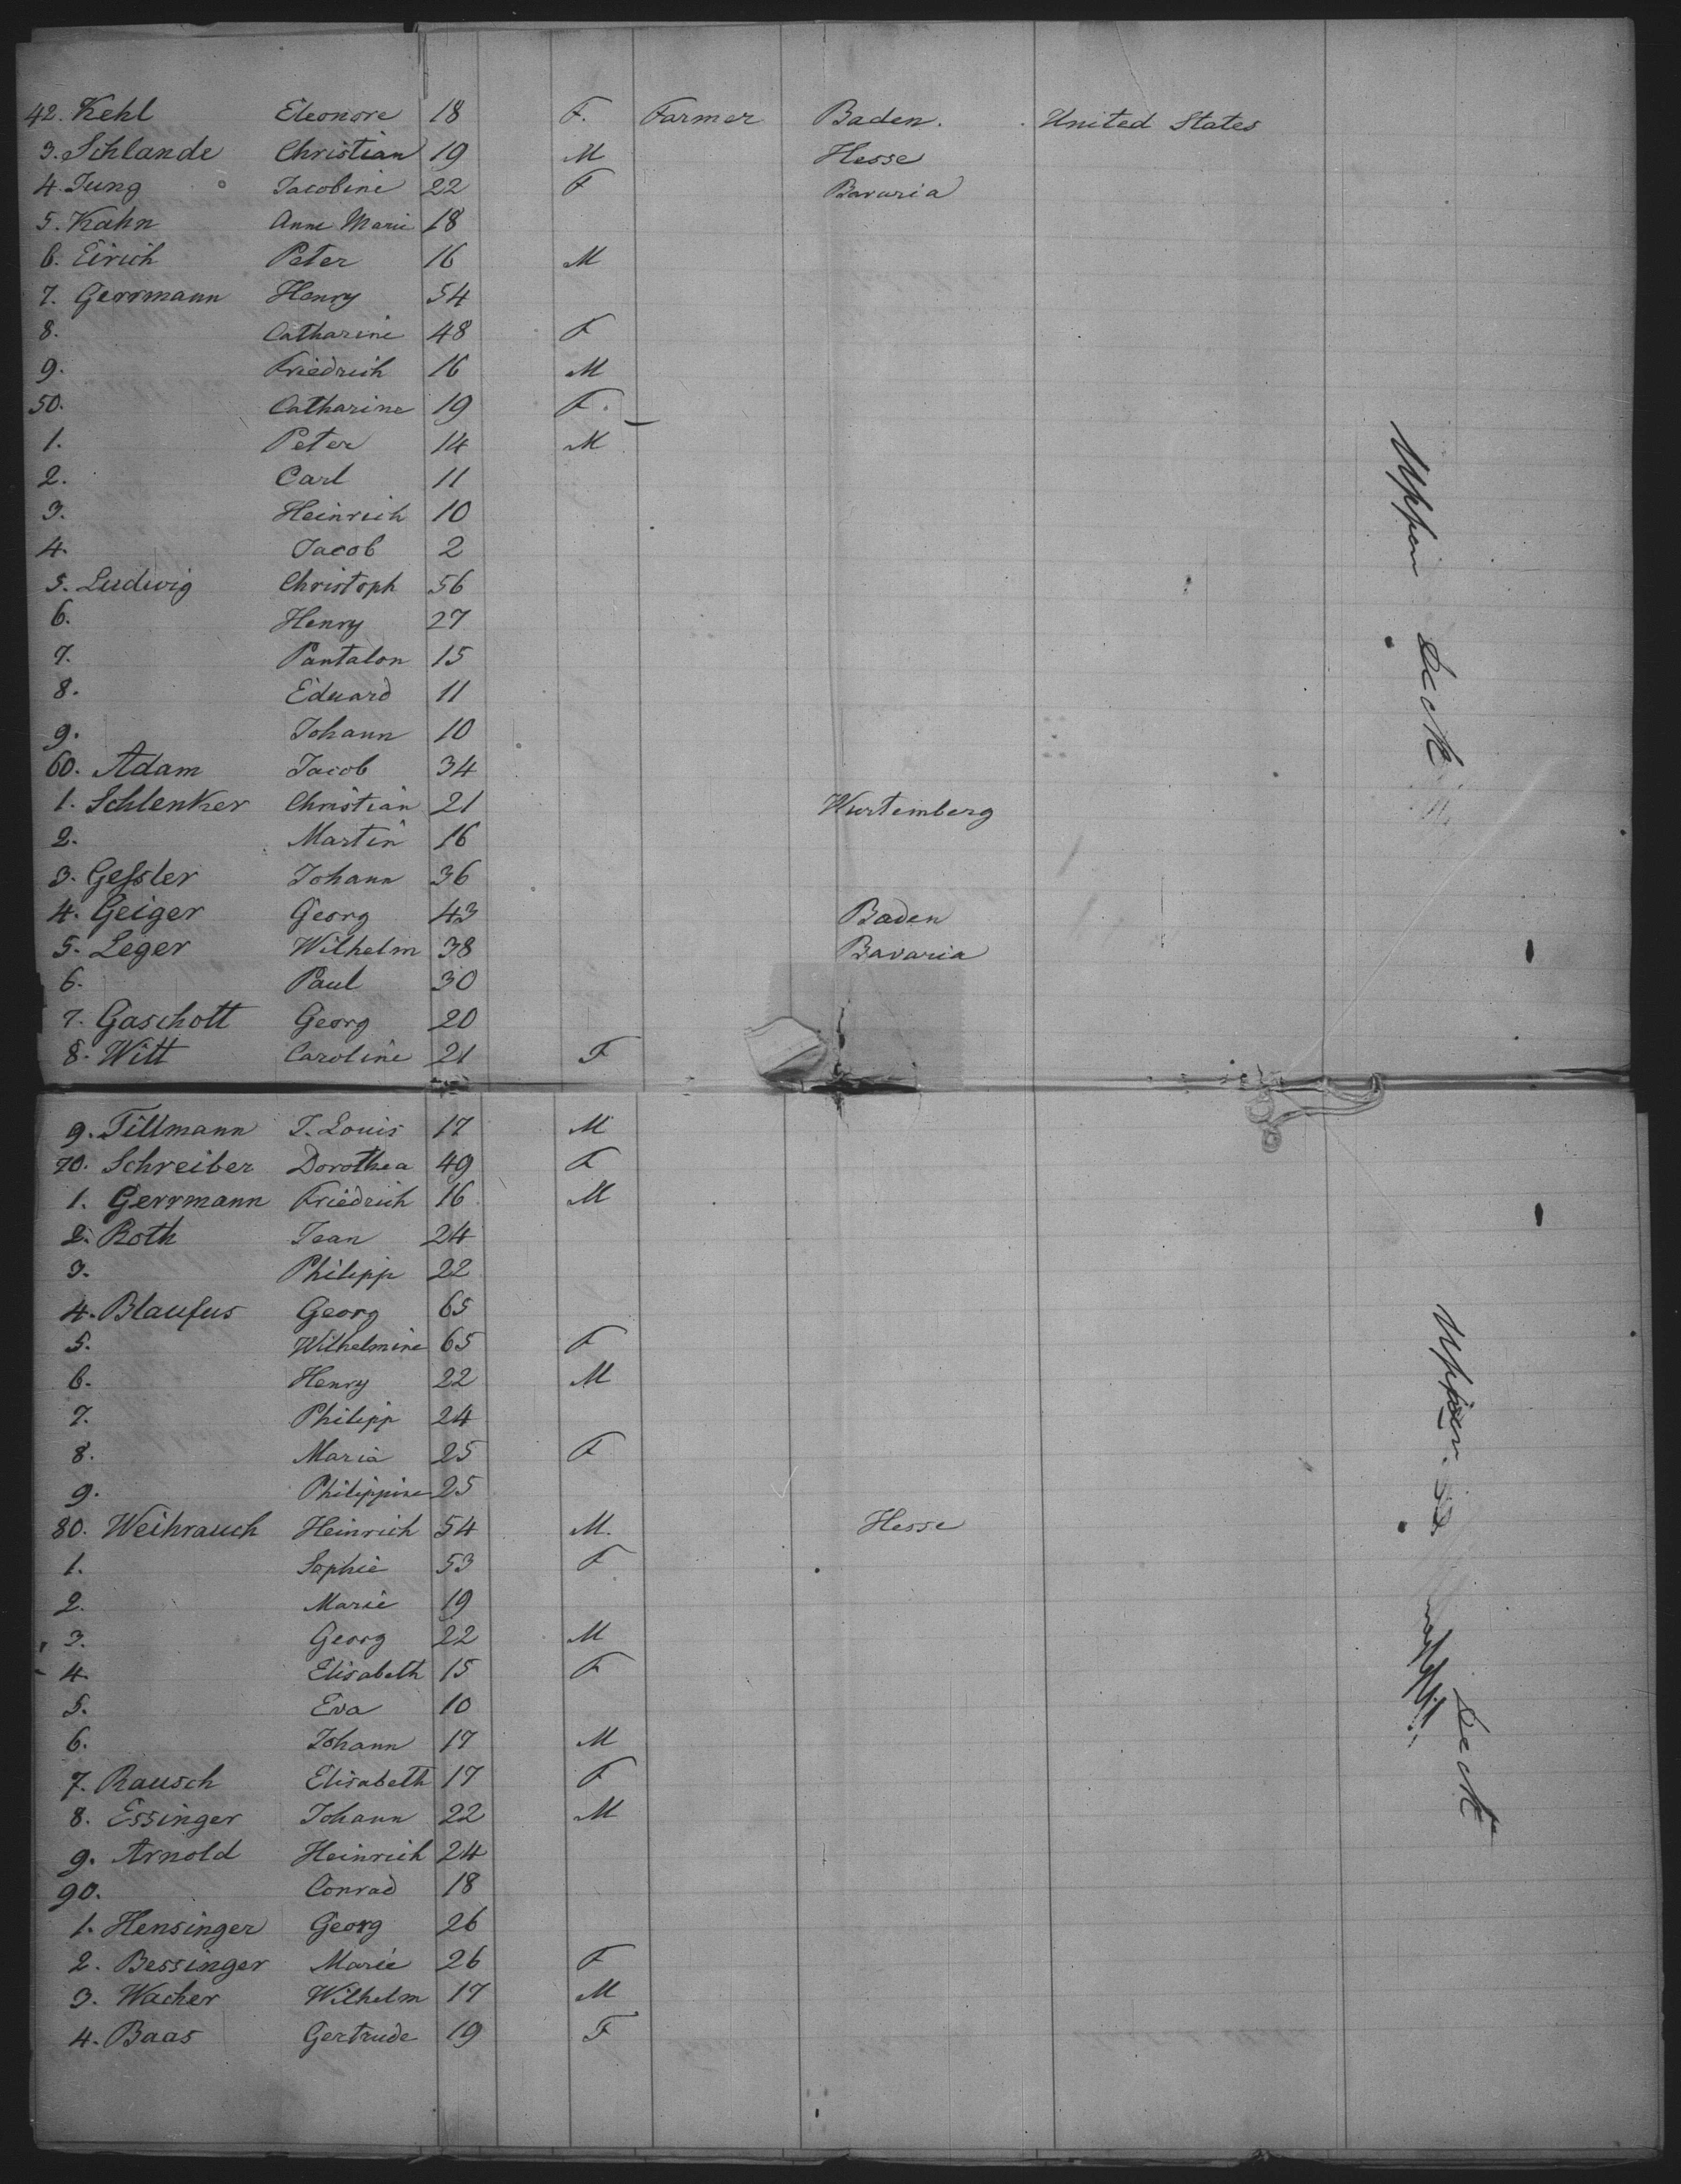 42. Kehl Eleonore 18 F. Farmer Baden. United States
3. Schlande Christian 19 M Hesse
4. Jung Jacobine 22 F Bavaria
5. Kahn Anne Marie 18
6. Eirich Peter 16 M
7. Gerrmann Henry 54
8. Catharine 48 F
9. Friedrich 16 M
50. Catharine 19 F.
1. Peter 14 M
2. Carl 11
3. Heinrich 10
4. Jacob 2
5. Ludwig Christoph 56
6. Henry 27
7. Pantalon 15
8. Eduard 11
9. Johann 10
60. Adam Jacob 34
1. Schlenker Christian 21 Wurtemberg
2. Martin 16
3. Gessler Johann 36
4. Geiger Georg 43 Baden
5. Leger Wilhelm 38 Bavaria
6. Paul 30
7. Gaschott Georg 20
8. Witt Caroline 21 F
9. Tillmann J. Louis 17 M
70. Schreiber Dorothea 49 F
1. Gerrmann Friedrich 16 M
2. Roth Jean 24
3. Philipp 22
4. Blaufus Georg 65
5. Wilhelmine 65 F
6. Henry 22 M
7. Philipp 24
8. Maria 25 F
9. Philippine 25
80. Weihrauch Heinrich 54 M. Hesse
1. Sophie 53 F
2. Marie 19
3. Georg 22 M
4. Elisabeth 15 F
5. Eva 10
6. Johann 17 M
7. Rausch Elisabeth 17 F
8. Essinger Johann 22 M
9. Arnold Heinrich 24
90. Conrad 18
1. Hensinger Georg 26
2. Bessinger Marie 26 F
3. Wacher Wilhelm 17 M
4. Baas Gertrude 19 F
Upper Deck
Upper Deck